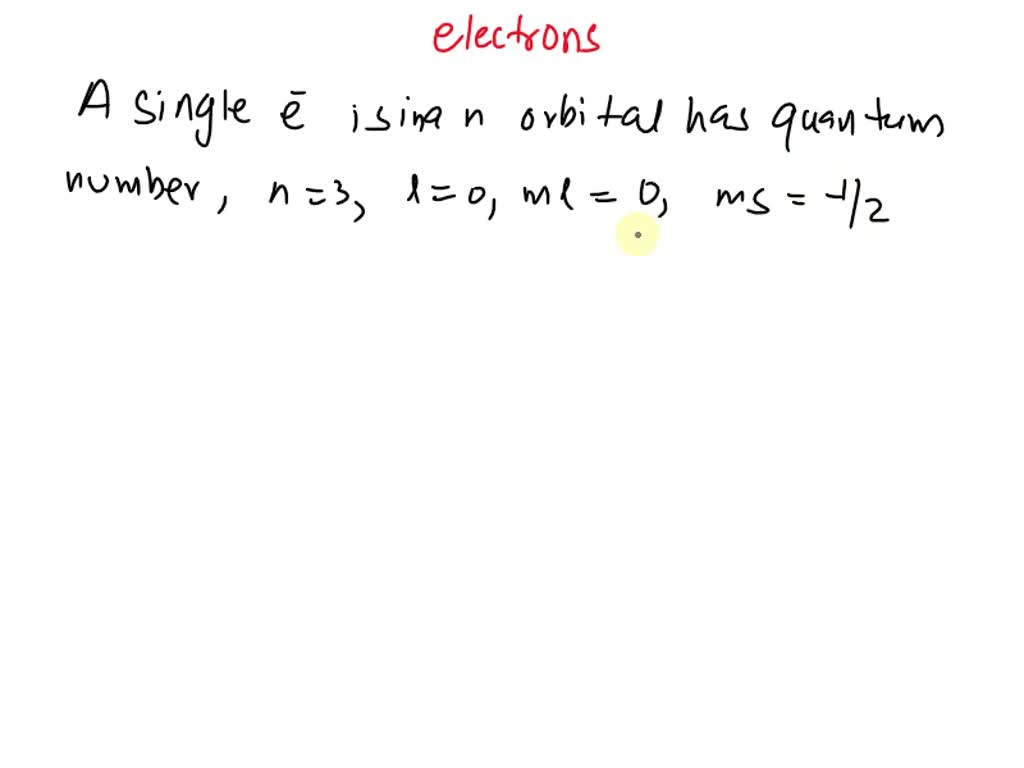 electrons
A single ē is in a n orbital has quantum
number, n = 3, l = 0, ml = 0, ms = -1/2